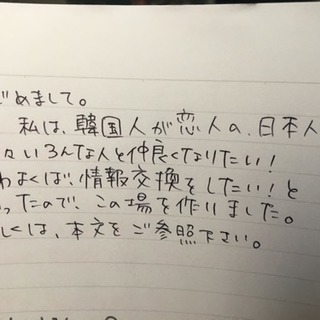 じめまして。
私は、韓国人が恋人の、日本人
々いろんな人と仲良くなりたい!
わよくば、情報交換をしたい!と
ったので、この場を作りました。
しくは、本文をご参照下さい。